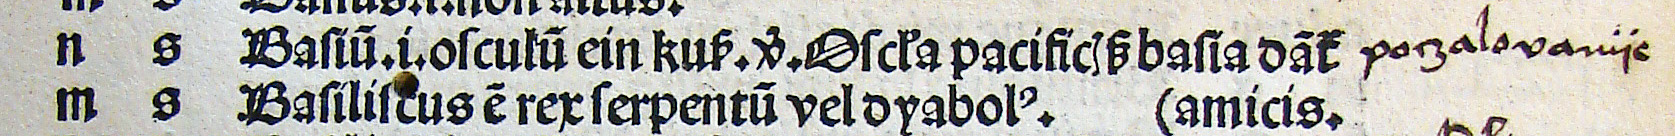 n s Basiū.i.osculū ein kuß.v̄.Oscl̄a pacificꝰ ß basia dāt̄ poczalovanije
m s Basiliscus ē rex serpentū vel dyabolꝰ. (amicis.